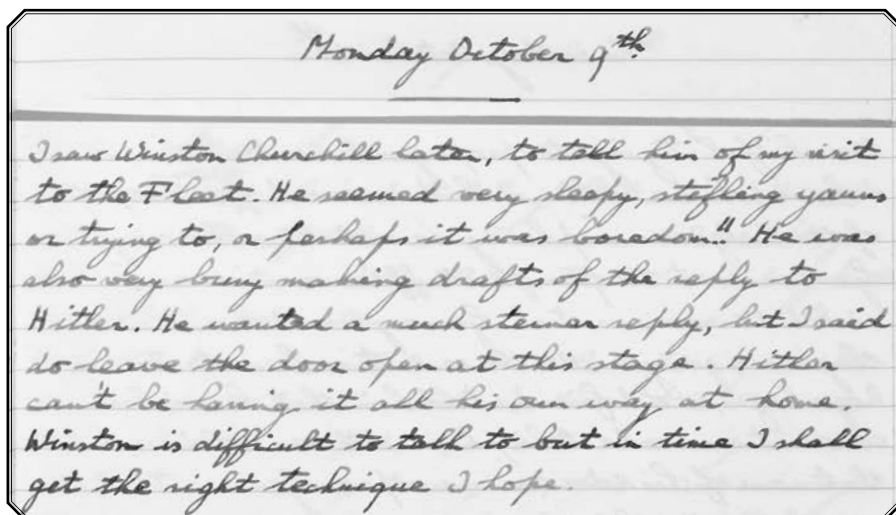 Monday October 9th.
I saw Winston Churchill later, to tell him of my visit
to the Fleet. He seemed very sleepy, stifling yawns
or trying to, or perhaps it was boredom!! He was
also very busy making drafts of the reply to
Hitler. He wanted a much sterner reply, but I said
do leave the door open at this stage. Hitler
can't be having it all his own way at home.
Winston is difficult to talk to but in time I shall
get the right technique I hope.